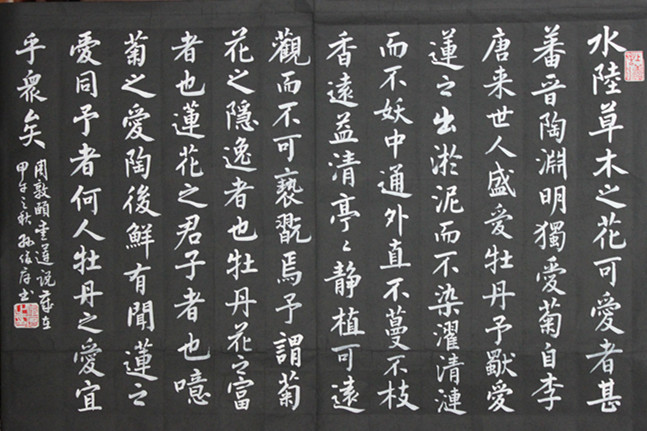 水陸草木之花可愛者甚
蕃晉陶淵明獨愛菊自李
唐来世人盛愛牡丹予愛
蓮之出淤泥而不染濯清漣
而不妖中通外直不蔓不枝
香遠益清亭々静植可遠
觀而不可褻翫焉予謂菊
花之隱逸者也牡丹花之富
者也蓮花之君子者也噫
菊之愛陶後鮮有聞蓮之
愛同予者何人牡丹之愛宜
乎眾矣
周敦頤蓮说在
甲午之秋